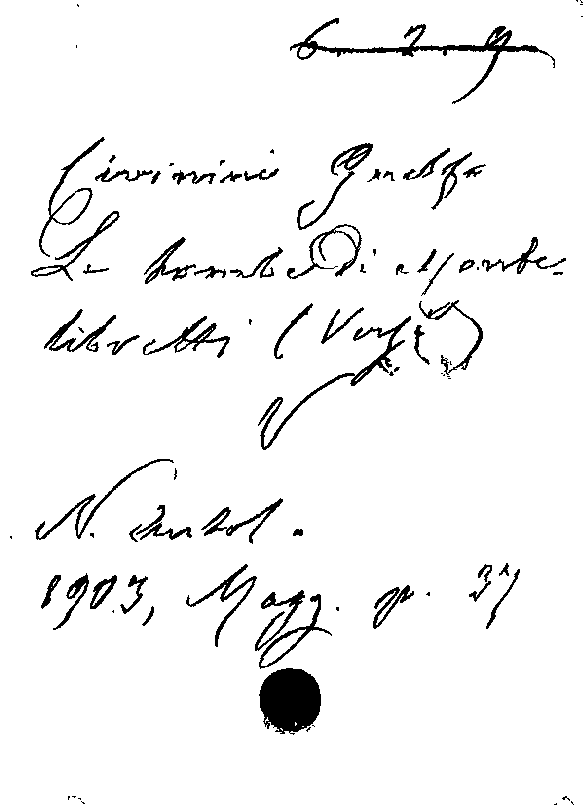 6. 2. 9
Civinini Guelfo
La tomba di Monte-
libretti (Versi)
N. Antol.
1903, Magg. p. 37